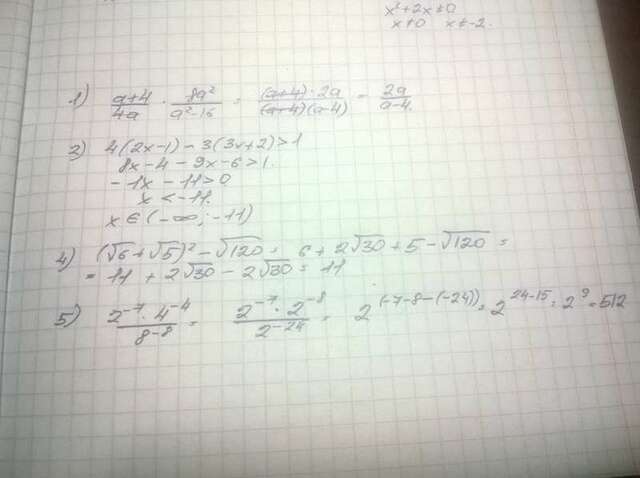 x² + 2x ≠ 0
x ≠ 0 x ≠ -2.
1) (a+4)/(4a) · (8a²)/(a²-16) = ((a+4)·2a)/((a+4)(a-4)) = 2a/(a-4)
2) 4(2x-1) - 3(3x+2) > 1
8x - 4 - 9x - 6 > 1
- 1x - 11 > 0
x < -11.
x ∈ (-∞; -11)
4) (√6 + √5)² - √120 = 6 + 2√30 + 5 - √120 =
= 11 + 2√30 - 2√30 = 11
5) (2⁻⁷ · 4⁻⁴)/(8⁻⁸) = (2⁻⁷ · 2⁻⁸)/(2⁻²⁴) = 2^(-7-8-(-24)) = 2^(24-15) = 2⁹ = 512